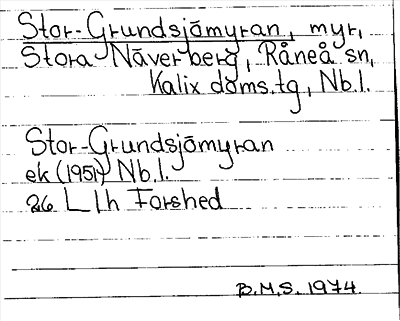 Stor-Grundsjömyran, myr,
Stora Näverberg, Råneå sn,
Kalix doms.tg, Nb.l.
Stor-Grundsjömyran
ek (1951) Nb.l.
26 L l h Forshed
B.M.S. 1974.